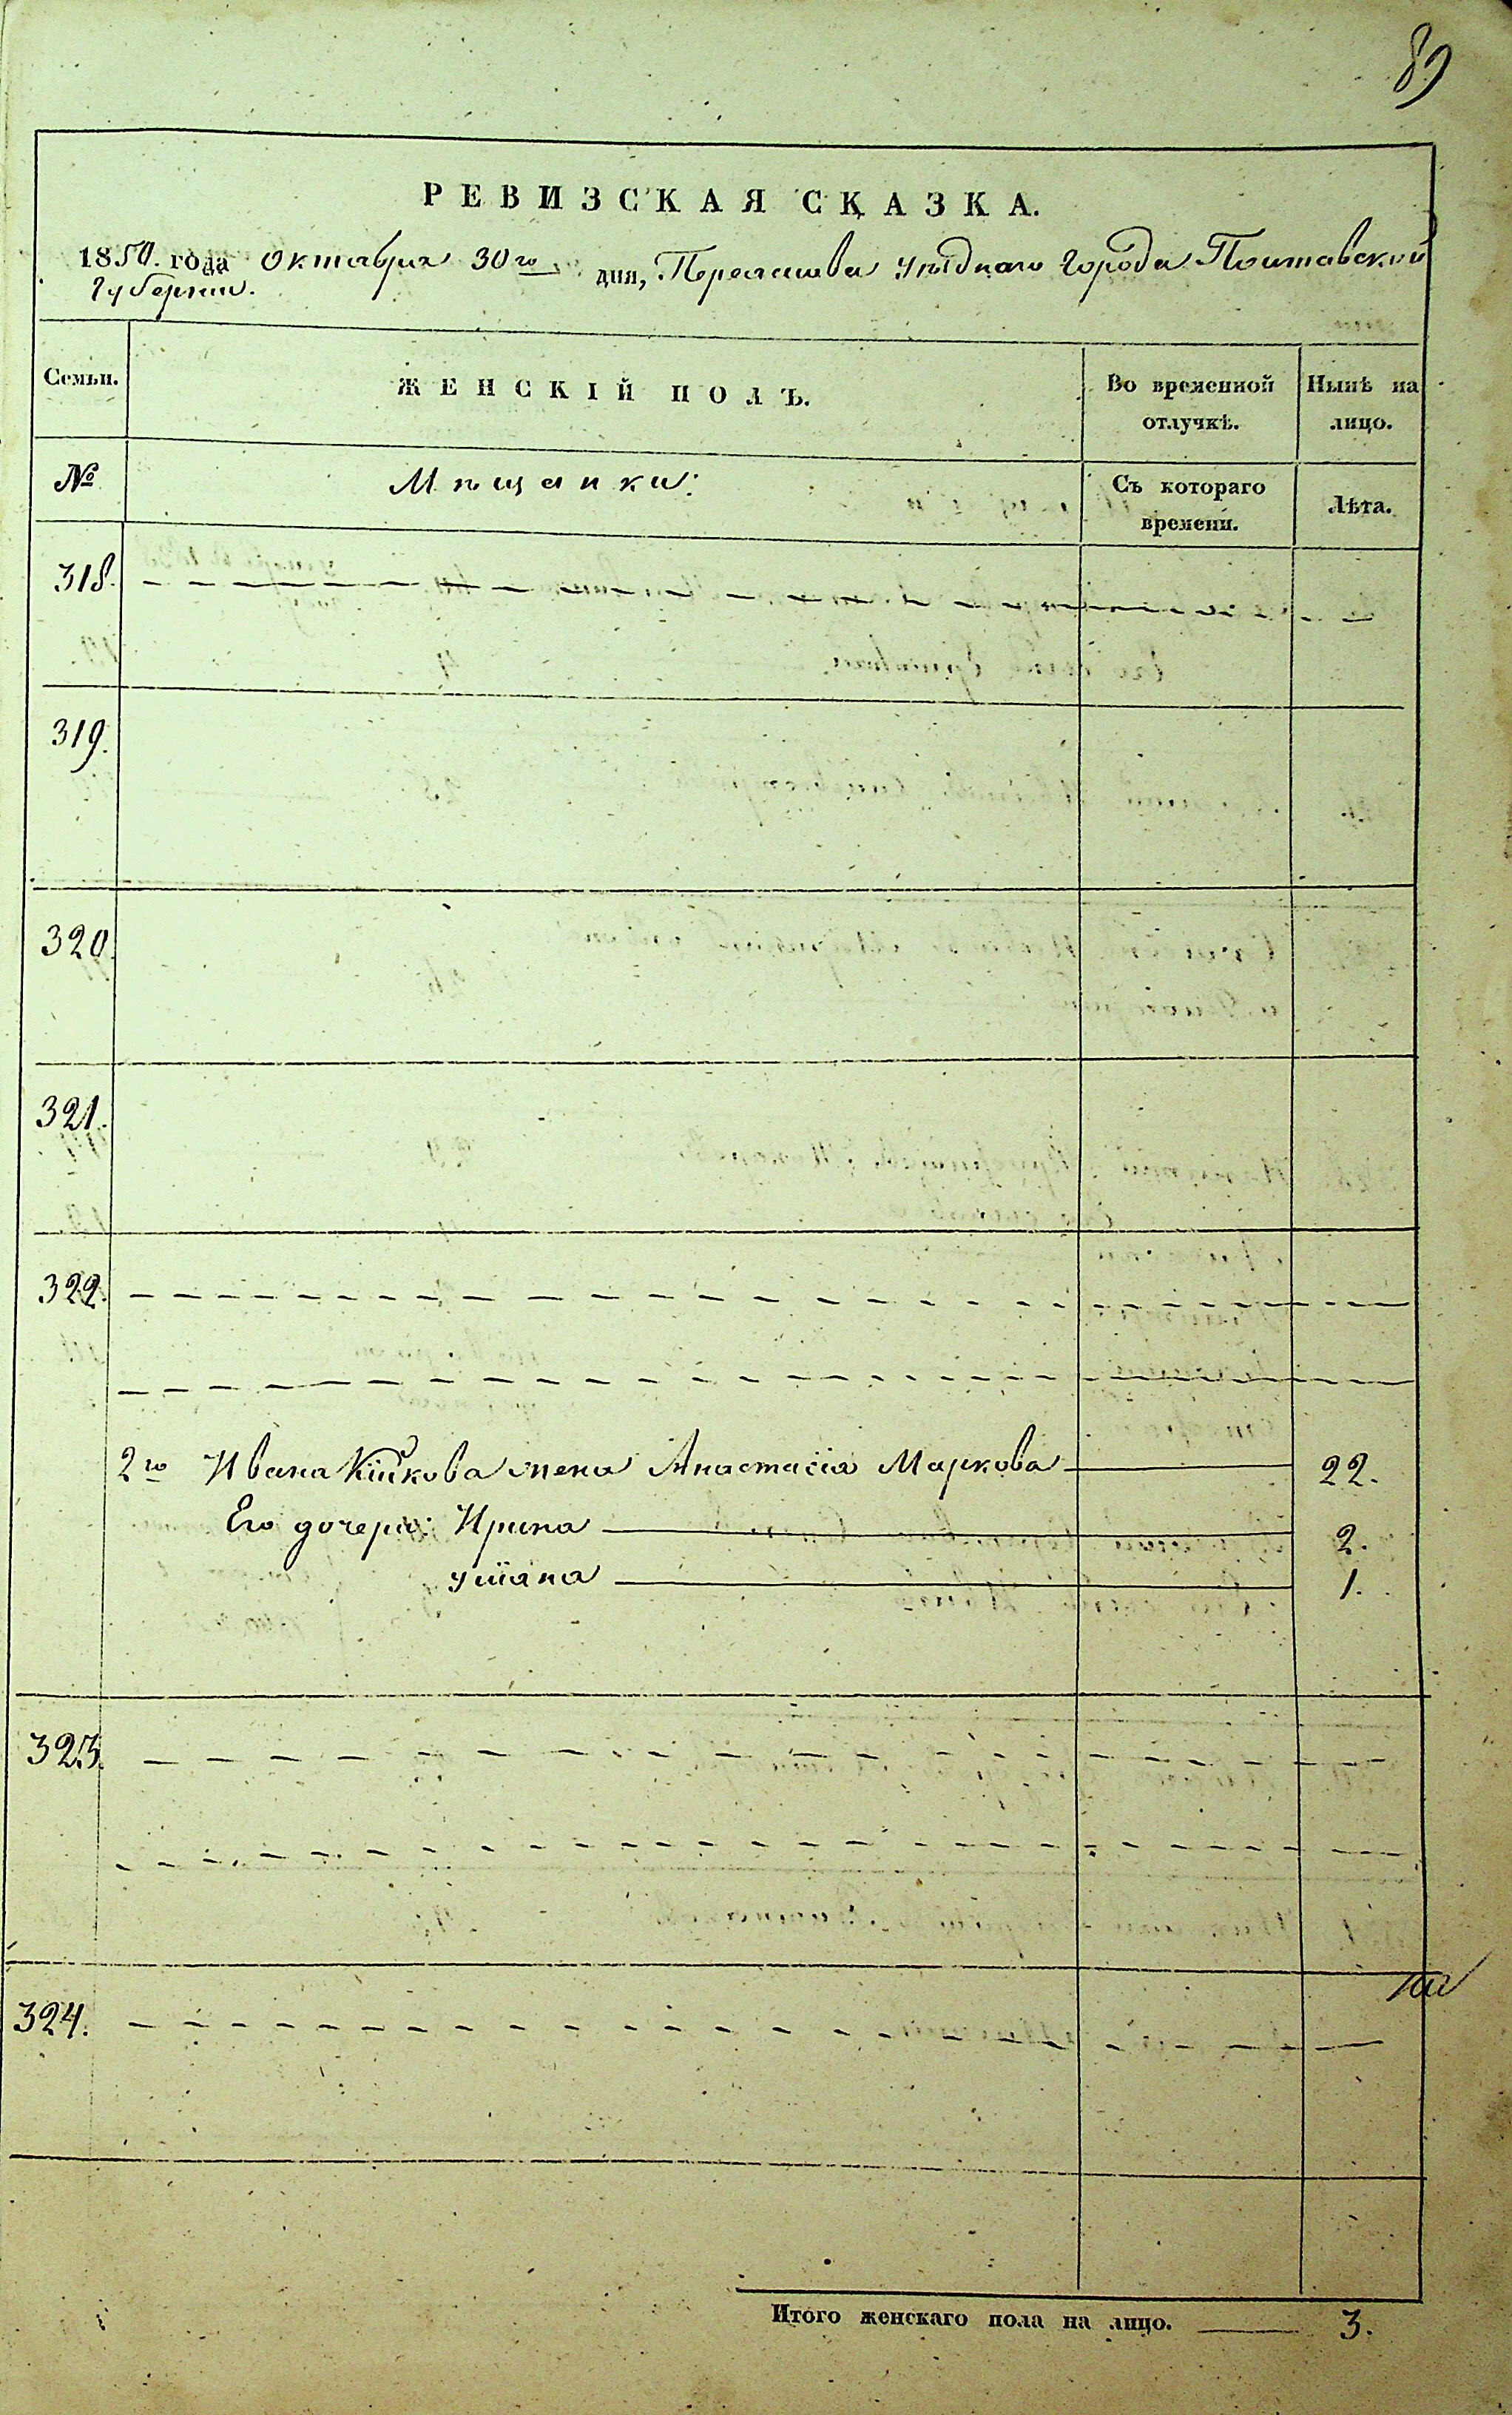 89
РЕВИЗСКАЯ СКАЗКА.
1850. года октября 30го дня, Переяслова уѣзднаго города Полтавской
Губерніи.
Семьи.
ЖЕНСКІЙ ПОЛЪ.
Во временной
отлучкѣ.
Нынѣ на
лицо.
№
Мѣщанки:
Съ котораго
времени.
Лѣта.
318.
319.
320.
321.
322.
2го Ивана Кійкова жена Анастасія Маркова 22.
Его дочери: Ирина 2.
Уліана 1.
323.
324.
Итого женскаго пола на лицо. 3.